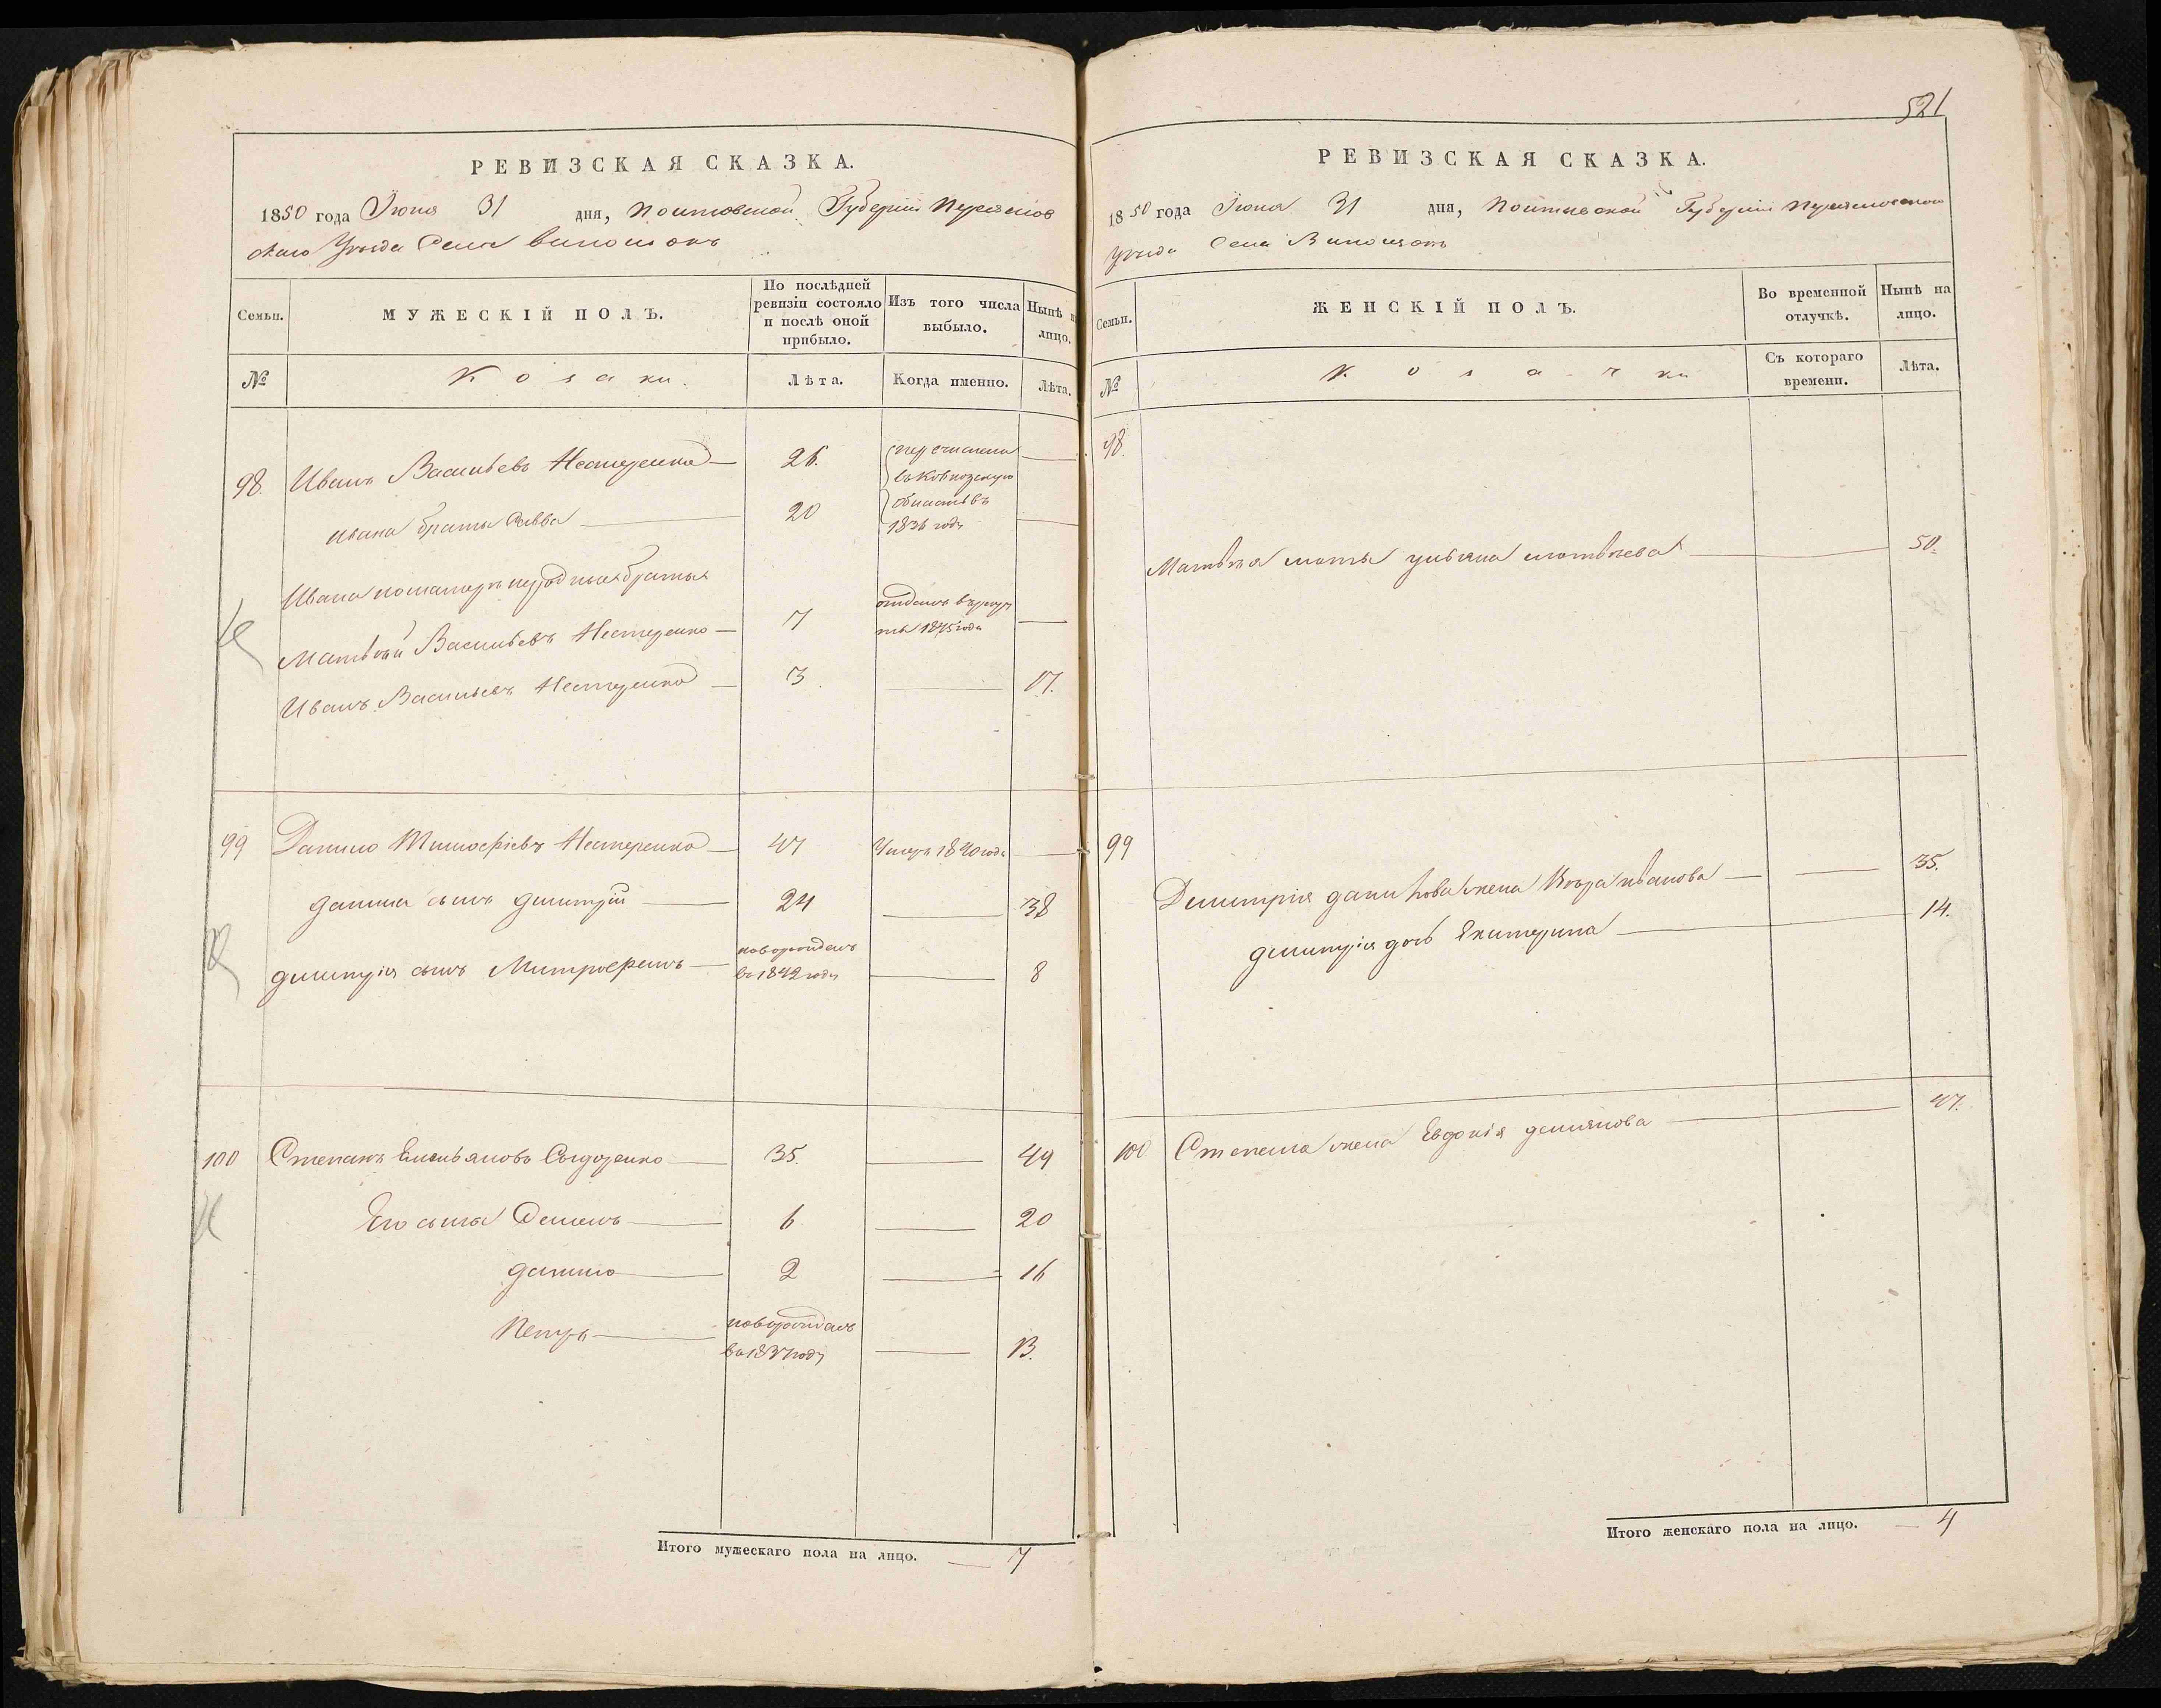 РЕВИЗСКАЯ СКАЗКА.
1850 года Июня 31 дня, Полтавской Губерніи Переяслов
скаго Уѣзда Села
Семьи.
МУЖЕСКІЙ ПОЛЪ.
По послѣдней ревизіи состояло и послѣ оной прибыло.
Изъ того числа выбыло.
Нынѣ на лицо.
№
Козаки.
Лѣта.
Когда именно.
Лѣта.
98. Иванъ Васильевъ Нестеренко 26. перечислены
въ
Ивана братъ Савва 20 область въ
1836 году
Ивана братья
отданъ въ рекру
Матвѣй Васильевъ Нестеренко 7 ты 1845 года
Иванъ Васильевъ Нестеренко 3 17.
99 Данило Тимофіевъ Нестеренко 47 Умеръ 1840 года
Данила сынъ Димитрій 24 38
новорожденъ
Димитрія сынъ Митрофанъ въ 1842 году 8
100 Степанъ Емельяновъ Сидоренко 35. 49
Его сына Семенъ 6 20
Данило 2 16
новорожденъ
Петръ въ 1837 году 13.
Итого мужескаго пола на лицо. 7
521
РЕВИЗСКАЯ СКАЗКА.
1850 года Июня 31 дня, Полтавской Губерніи Переясловскаго
Уѣзда Села
Семьи.
ЖЕНСКІЙ ПОЛЪ.
Во временной отлучкѣ.
Нынѣ на лицо.
№
Козачки
Съ котораго времени.
Лѣта.
98.
Матвѣя мать Ульяна Матвѣева 50.
99
Димитрія Данилова жена Вѣра Иванова 35.
Димитрія дочь Екатерина 14.
100 Степана жена Евдокія Демянова 47.
Итого женскаго пола на лицо. 4